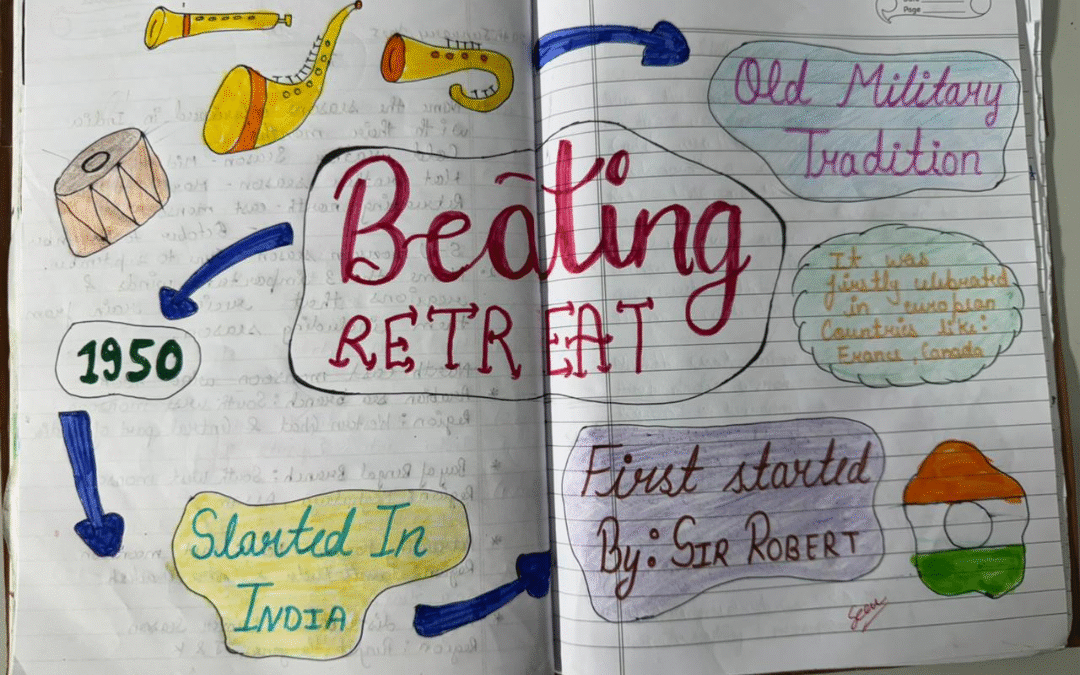 Page
Beating
RETREAT
Old Military
Tradition
It was
firstly celebrated
in european
Countries like:
France, Canada
1950
Started In
INDIA
First started
By: SIR ROBERT